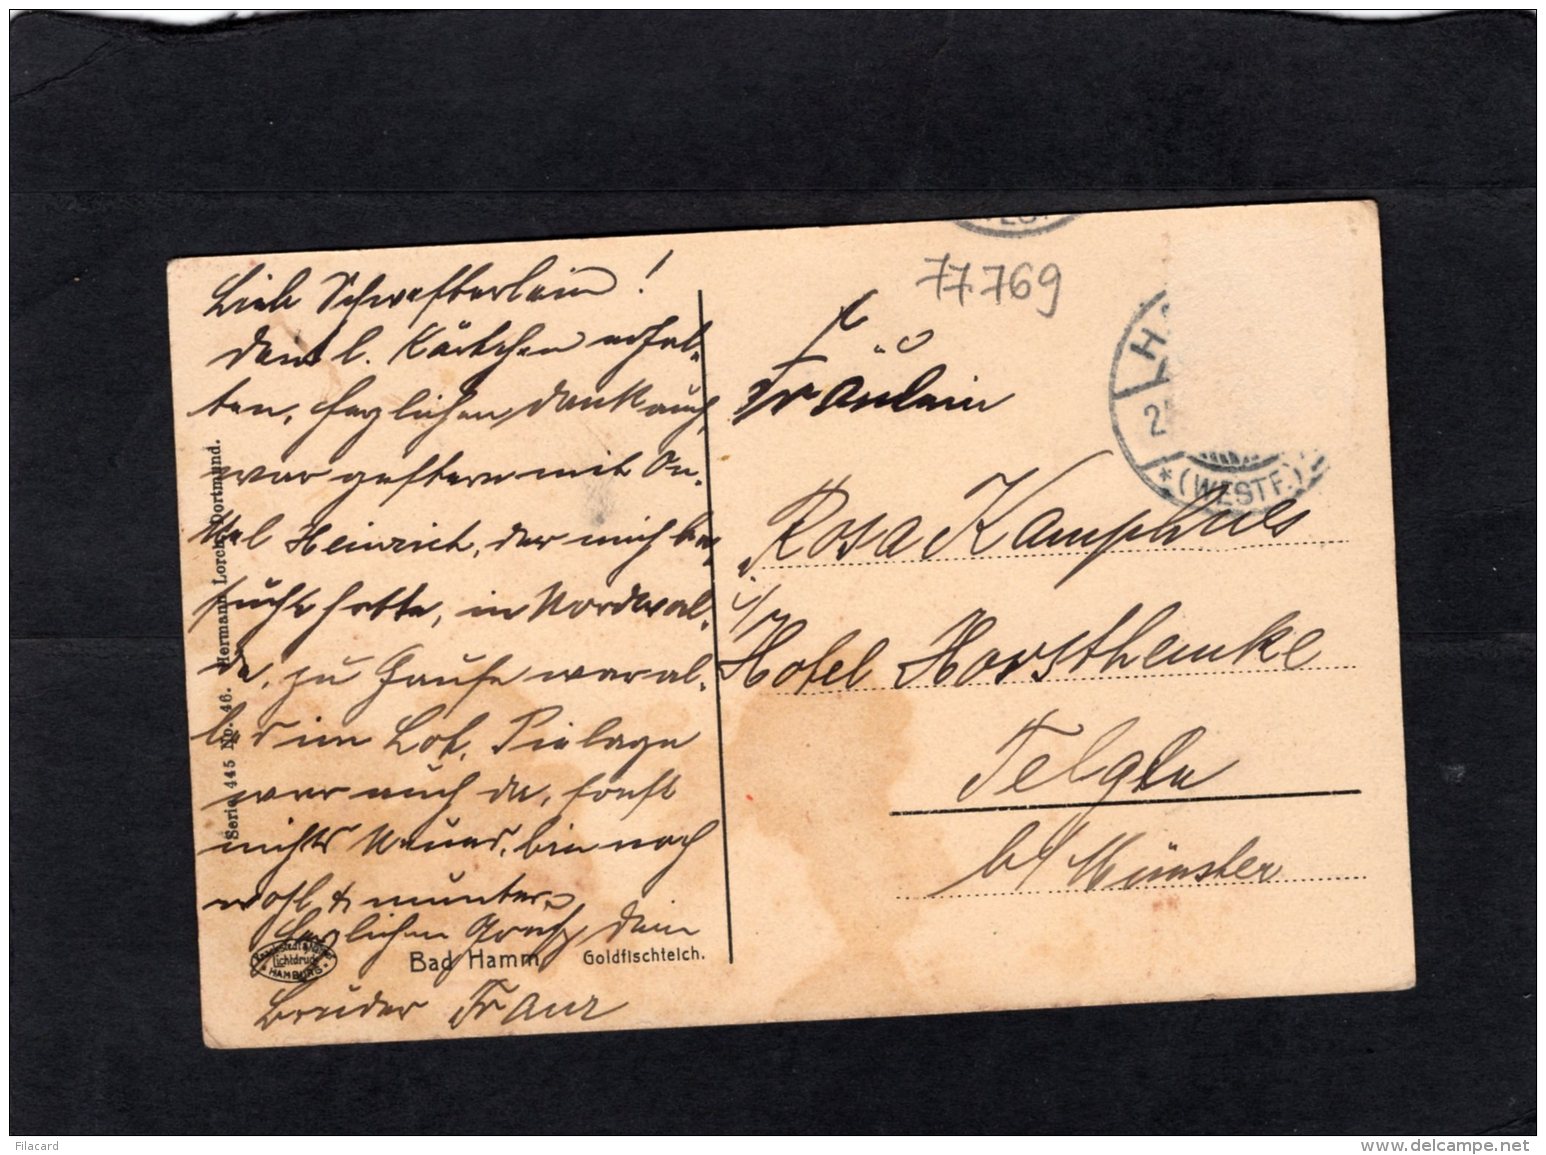 Lieb Schwesterlein!
Dein l. Kärtchen erhal-
ten, herzlichen Dank auch,
war gestern mit On-
kel Heinrich, der mich be-
sucht hatte, in Nordwal-
de, zu Hause war al-
les im Lot. Pielage
war auch da, sonst
nichts Neues, bin noch
wohl & munter.
Herzlichen Gruß Dein
Bruder Franz
Serie 445 No. 46. Hermann Lorch, Dortmund.
Lichtdruck
HAMBURG
Bad Hamm Goldfischteich.
77769
Fräulein
Rosa Kamphues
Hotel Horsthemke
Telgte
b/ Münster
H
2
* (WESTF.)
Filacard
www.delcampe.net